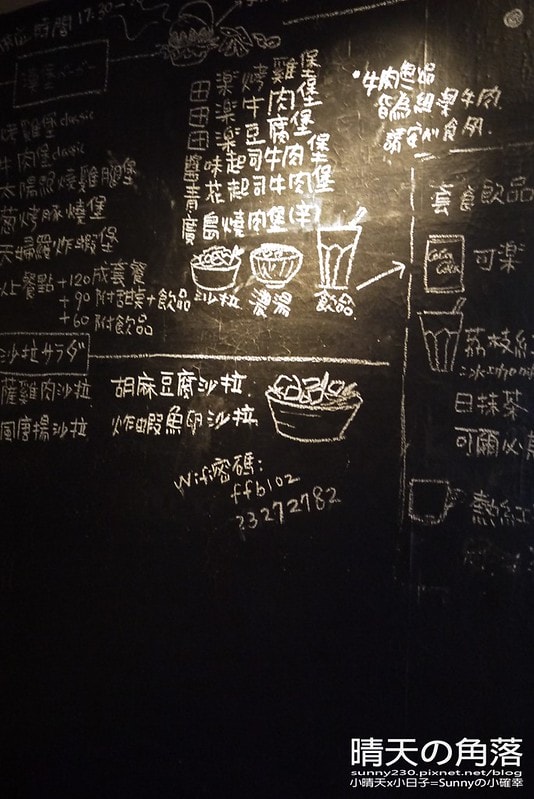 時間 17:30
烤雞堡 classic
牛肉堡 classic
太陽眼燒雞腿堡
蔥烤豚燒堡
天婦羅炸蝦堡
以上餐點 +120 成套餐
+90 附甜菜+飲品
+60 附飲品
田楽烤雞堡
田楽牛肉堡
田楽豆腐堡
醬味起司牛肉堡
青花起司牛肉堡
廣島燒肉堡(辛)
沙拉
濃湯
飲品
*牛肉
皆為組梁牛肉
請安心食用.
套食飲品
Coca Cola
可楽
荔枝紅
:冰咖啡
日抹茶
可爾必
熱紅
沙拉サラダ
薩雞肉沙拉
風唐揚沙拉
胡麻豆腐沙拉.
炸蝦魚卵沙拉
Wifi密碼:
ffb102
23272782
晴天の角落
sunny230.pixnet.net/blog
小晴天x小日子=Sunnyの小確幸